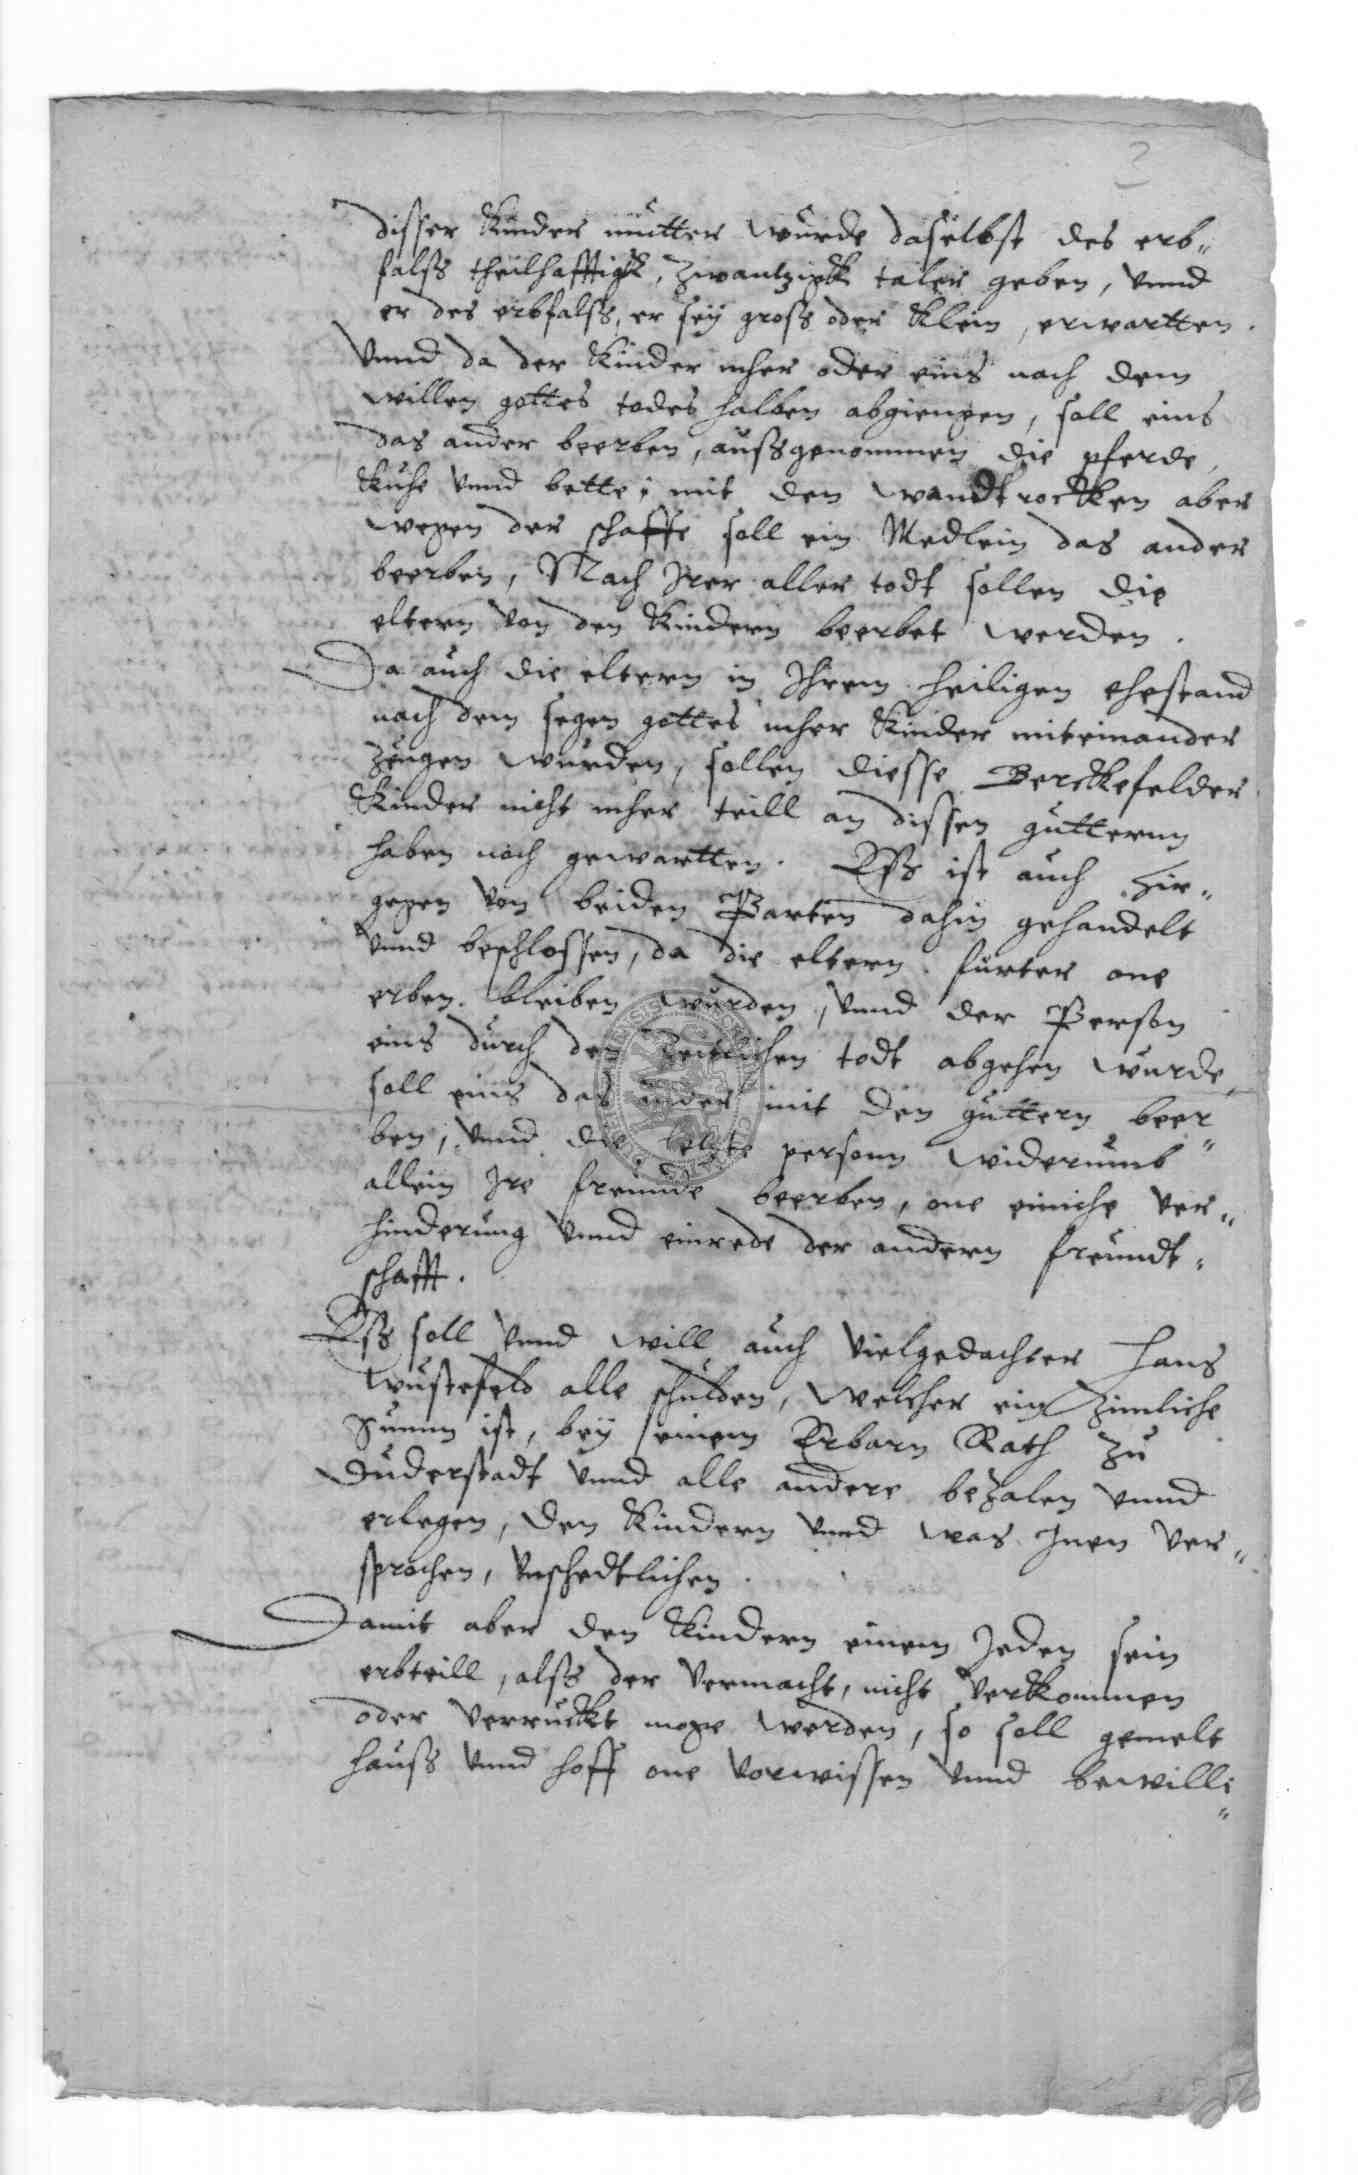 3
disser Kinder mutter wurde daselbst des erb„
falss theilhafftigk, zwantzigk taler geben, vnnd
er des erbfalss, er sey gross oder klein, erwartten.
Vnnd da der Kinder mher oder eins nach dem
willen gottes todes halben abgiengen, soll eins
das ander beerben, aussgenommen die pferde,
Kuhe vnnd bette; mit den wandtrockken aber
wegen der schaffe soll ein Medlein das ander
beerben, Nach Irer aller todt sollen die
eltern von den Kindern beerbet werden.
Da auch die eltern in Ihrem heiligen ehestand
nach dem segen gottes mher Kinder miteinander
zeugen wurden, sollen diesse Berckefelder
Kinder nicht mher teill an dissen gutternn
haben noch gewartten. Ess ist auch hir„
gegen von beiden Parten dahin gehandelt
vnnd beschlossen, da die eltern furter one
erben bleiben wurden, vnnd der Person
eins durch den zeitlichen todt abgehen wurde,
soll eins das ander mit den guttern beer„
ben, vnnd die letzte personn widerumb
allein Ire freunde beerben, one einiche ver„
hinderung vnnd einrede der andern freundt„
schafft.
Ess soll vnnd will auch vielgedachter Hans
Wustefeld alle schulden, welcher ein zimliche
Summ ist, bey einem Erbarn Rath zu
Duderstadt vnnd alle andere bezalen vnnd
erlegen, den Kindern vnnd was Inen ver„
sprochen, vnschedtlichen.
Damit aber den Kindern einem Jeden sein
erbteill, alss der vermacht, nicht verkommen
oder verruckt moge werden, so soll gemelt
hauss vnnd hoff one vorwissen vnnd bewilli„